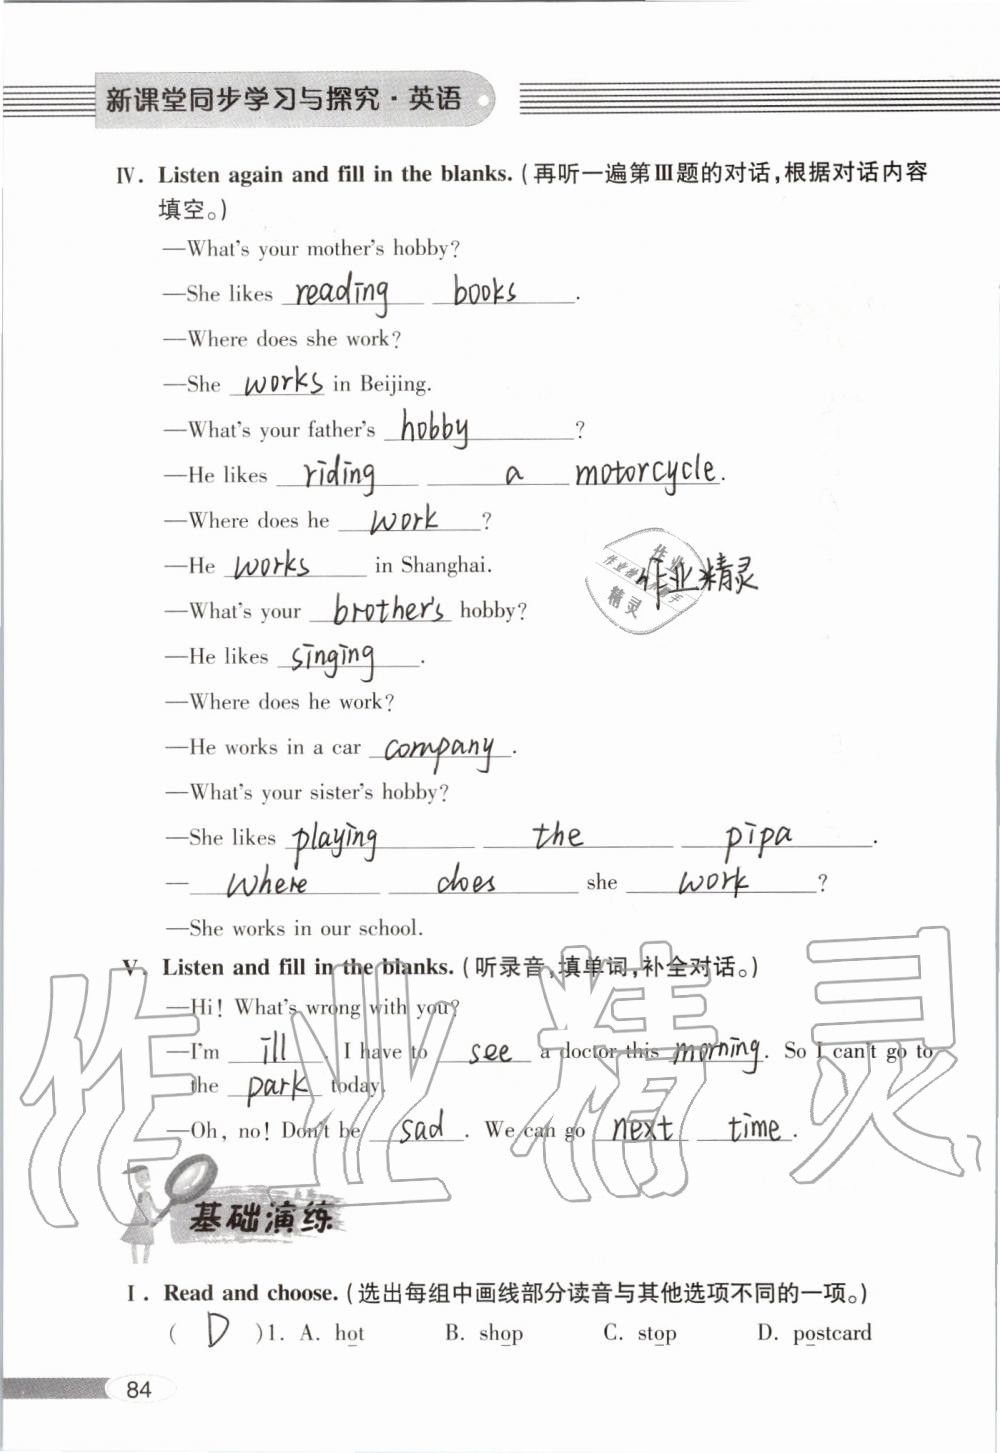 新课堂同步学习与探究·英语
Ⅳ. Listen again and fill in the blanks. (再听一遍第Ⅲ题的对话,根据对话内容
填空。)
—What's your mother's hobby?
—She likes reading books.
—Where does she work?
—She works in Beijing.
—What's your father's hobby?
—He likes riding a motorcycle.
—Where does he work?
—He works in Shanghai.
—What's your brother's hobby?
—He likes singing.
—Where does he work?
—He works in a car company.
—What's your sister's hobby?
—She likes playing the pipa.
—Where does she work?
—She works in our school.
作业精灵
Ⅴ. Listen and fill in the blanks. (听录音,填单词,补全对话。)
—Hi! What's wrong with you?
—I'm ill. I have to see a doctor this morning. So I can't go to
the park today.
—Oh, no! Don't be sad. We can go next time.
作业精灵
基础演练
Ⅰ. Read and choose. (选出每组中画线部分读音与其他选项不同的一项。)
( D )1. A. hot B. shop C. stop D. postcard
84